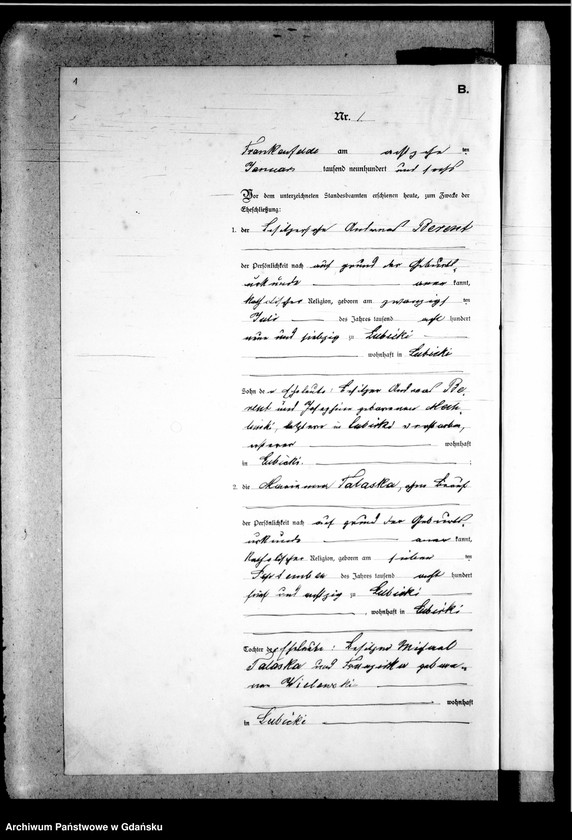 1
B.
Nr. 1
Frankenfelde am achtzehn ten
Januar tausend neunhundert und sechs
Vor dem unterzeichneten Standesbeamten erschienen heute, zum Zwecke der
Eheschließung:
1. der Besitzersohn Andreas Berent
der Persönlichkeit nach auf grund der Geburts-
urkunde aner kannt,
katholischer Religion, geboren am zwanzigsten
Juli des Jahres tausend acht hundert
neun und siebzig zu Lubicki
wohnhaft in Lubicki
Sohn der Eheleute: Besitzer Andreas Be-
rent und Josephine geborenen
letztere in Lubicki verstorben,
ersterer wohnhaft
in Lubicki.
2. die Marianna Tataska, ohne Beruf
der Persönlichkeit nach auf grund der Geburts-
urkunde aner kannt,
katholischer Religion, geboren am sieben ten
September des Jahres tausend acht hundert
fünf und achtzig zu Lubicki
, wohnhaft in Lubicki
Tochter der Eheleute: Besitzer Michael
Tataska und Franziska gebore-
nen Wielewski
wohnhaft
in Lubicki
Archiwum Państwowe w Gdańsku